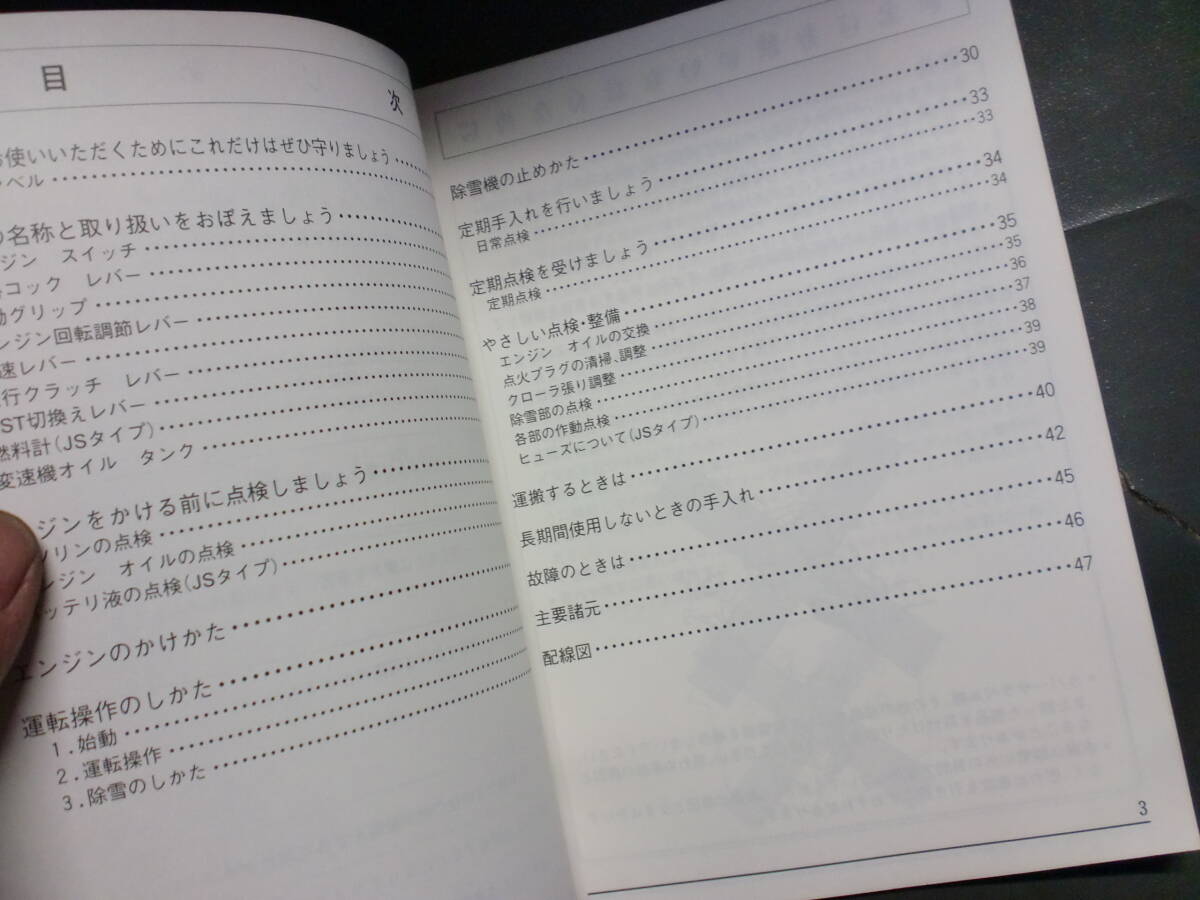 目次
使いいただくためにこれだけはぜひ守りましょう
ベル
名称と取り扱いをおぼえましょう
ジン スイッチ
コック レバー
動グリップ
ンジン回転調節レバー
速レバー
行クラッチ レバー
ST切換えレバー
燃料計(JSタイプ)
変速機オイル タンク
ジンをかける前に点検しましょう
ソリンの点検
ンジン オイルの点検
ッテリ液の点検(JSタイプ)
エンジンのかけかた
運転操作のしかた
1.始動
2.運転操作
3.除雪のしかた
除雪機の止めかた 30
定期手入れを行いましょう 33
日常点検 33
定期点検を受けましょう 34
定期点検 34
やさしい点検・整備 35
エンジン オイルの交換 35
点火プラグの清掃、調整 36
クローラ張り調整 37
除雪部の点検 38
各部の作動点検 39
ヒューズについて(JSタイプ) 39
運搬するときは 40
長期間使用しないときの手入れ 42
故障のときは 45
主要諸元 46
配線図 47
3